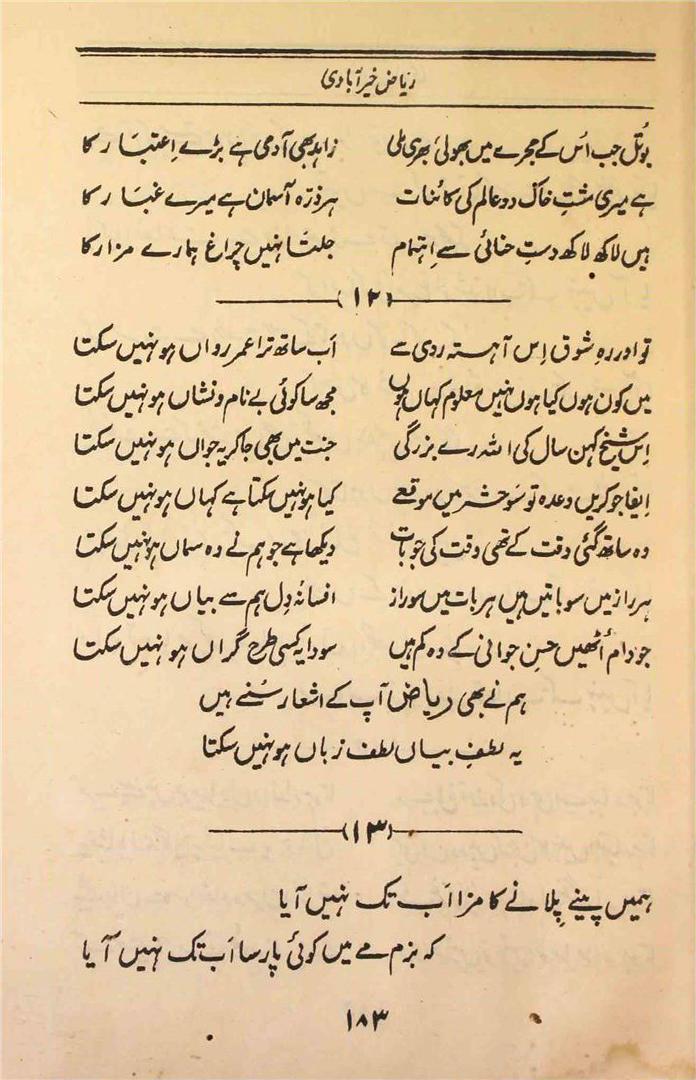 ریاض خیرآبادی
بوتل جب اُس کے حجرے میں بھولی بھری ملی زاہد بھی آدمی ہے بڑے اِعتبار کا
ہے میری مشتِ خاک دو عالم کی کائنات ہر ذرّہ آسمان ہے میرے غبار کا
ہیں لاکھ لاکھ دستِ حنائی سے اِہتمام جلتا نہیں چراغ ہمارے مزار کا
(۱۲)
تو اور رہِ شوق اِس آہستہ روی سے اَب ساتھ ترا عمرِ رواں ہو نہیں سکتا
میں کون ہوں کیا ہوں نہیں معلوم کہاں ہوں مجھ سا کوئی بے نام و نشاں ہو نہیں سکتا
اِس شیخِ کہن سال کی اللہ رے بزرگی جنت میں بھی جا کر یہ جواں ہو نہیں سکتا
اِیفا جو کریں وعدہ تو سَو حشر میں موقعے کیا ہو نہیں سکتا ہے کہاں ہو نہیں سکتا
وہ ساتھ گئی وقت کے تھی وقت کی جو بات دیکھا ہے جو ہم نے وہ سماں ہو نہیں سکتا
ہر راز میں سو باتیں ہیں ہر بات میں سو راز افسانۂ دِل ہم سے بیاں ہو نہیں سکتا
جو دام اُٹھیں حسنِ جوانی کے وہ کم ہیں سودا یہ کسی طرح گراں ہو نہیں سکتا
ہم نے بھی ریاض آپ کے اشعار سُنے ہیں
یہ لطفِ بیاں لطفِ زباں ہو نہیں سکتا
(۱۳)
ہمیں پینے پِلانے کا مزا اَب تک نہیں آیا
کہ بزمِ مے میں کوئی پارسا اَب تک نہیں آیا
۱۸۳